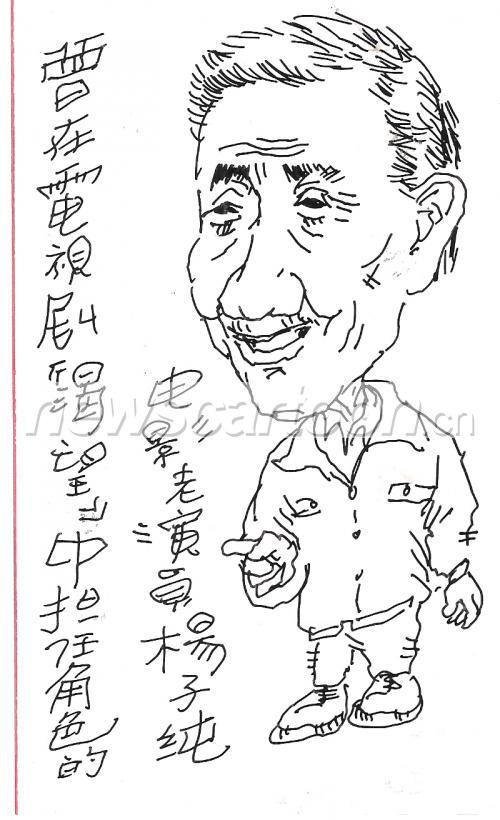 曾在電視剧渴望中担任角色的
电影老演員楊子纯
newscartoon.cn